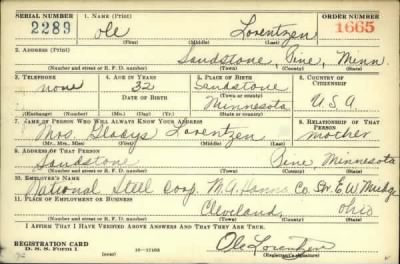 SERIAL NUMBER
1. NAME (Print)
ORDER NUMBER
2289
Ole Lorentzen
1665
(First) (Middle) (Last)
2. ADDRESS (Print)
Sandstone, Pine, Minn.
(Number and street or R. F. D. number) (Town) (County) (State)
3. TELEPHONE
4. AGE IN YEARS
5. PLACE OF BIRTH
6. COUNTRY OF CITIZENSHIP
none
32
Sandstone
DATE OF BIRTH
(Town or county)
Minnesota
U.S.A
(Exchange) (Number) (Mo.) (Day) (Yr.) (State or country)
7. NAME OF PERSON WHO WILL ALWAYS KNOW YOUR ADDRESS
8. RELATIONSHIP OF THAT PERSON
Mrs. Gladys Lorentzen
mother
(Mr., Mrs., Miss) (First) (Middle) (Last)
9. ADDRESS OF THAT PERSON
Sandstone Pine Minnesota
(Number and street or R. F. D. number) (Town) (County) (State)
10. EMPLOYER'S NAME
National Steel Corp. M.A. Hanna Co. Str. E.W. Mudge
11. PLACE OF EMPLOYMENT OR BUSINESS
Cleveland Ohio
(Number and street or R. F. D. number) (Town) (County) (State)
I AFFIRM THAT I HAVE VERIFIED ABOVE ANSWERS AND THAT THEY ARE TRUE.
REGISTRATION CARD
D. S. S. Form 1
Ole Lorentzen
(Registrant's signature)